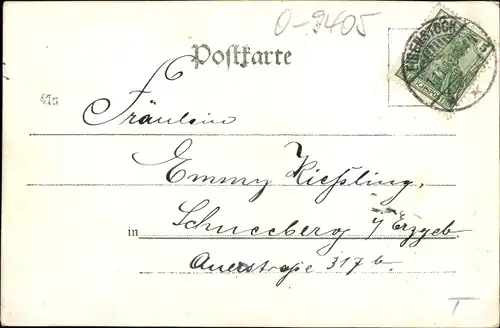 O-9405
Postkarte
EIBENSTOCK
An
Fräulein
Emmy Kießling,
in Schneeberg i/Erzgeb.
Auerstraße 317 b.
T